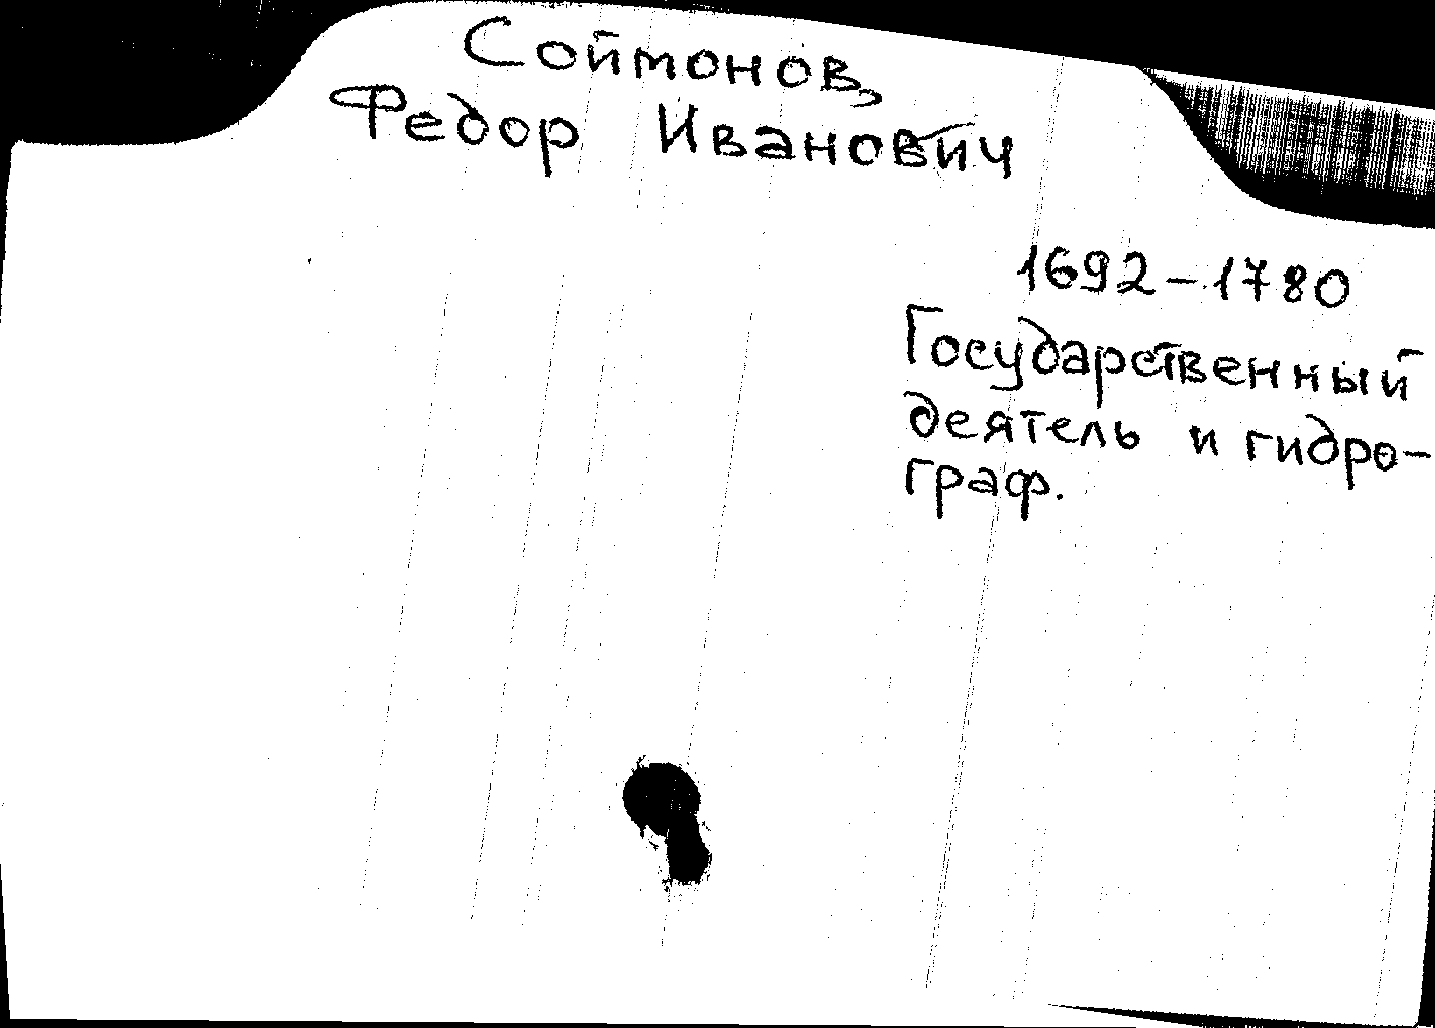 Соймонов,
Федор Иванович
1692-1780
Государственный
деятель и гидро-
граф.